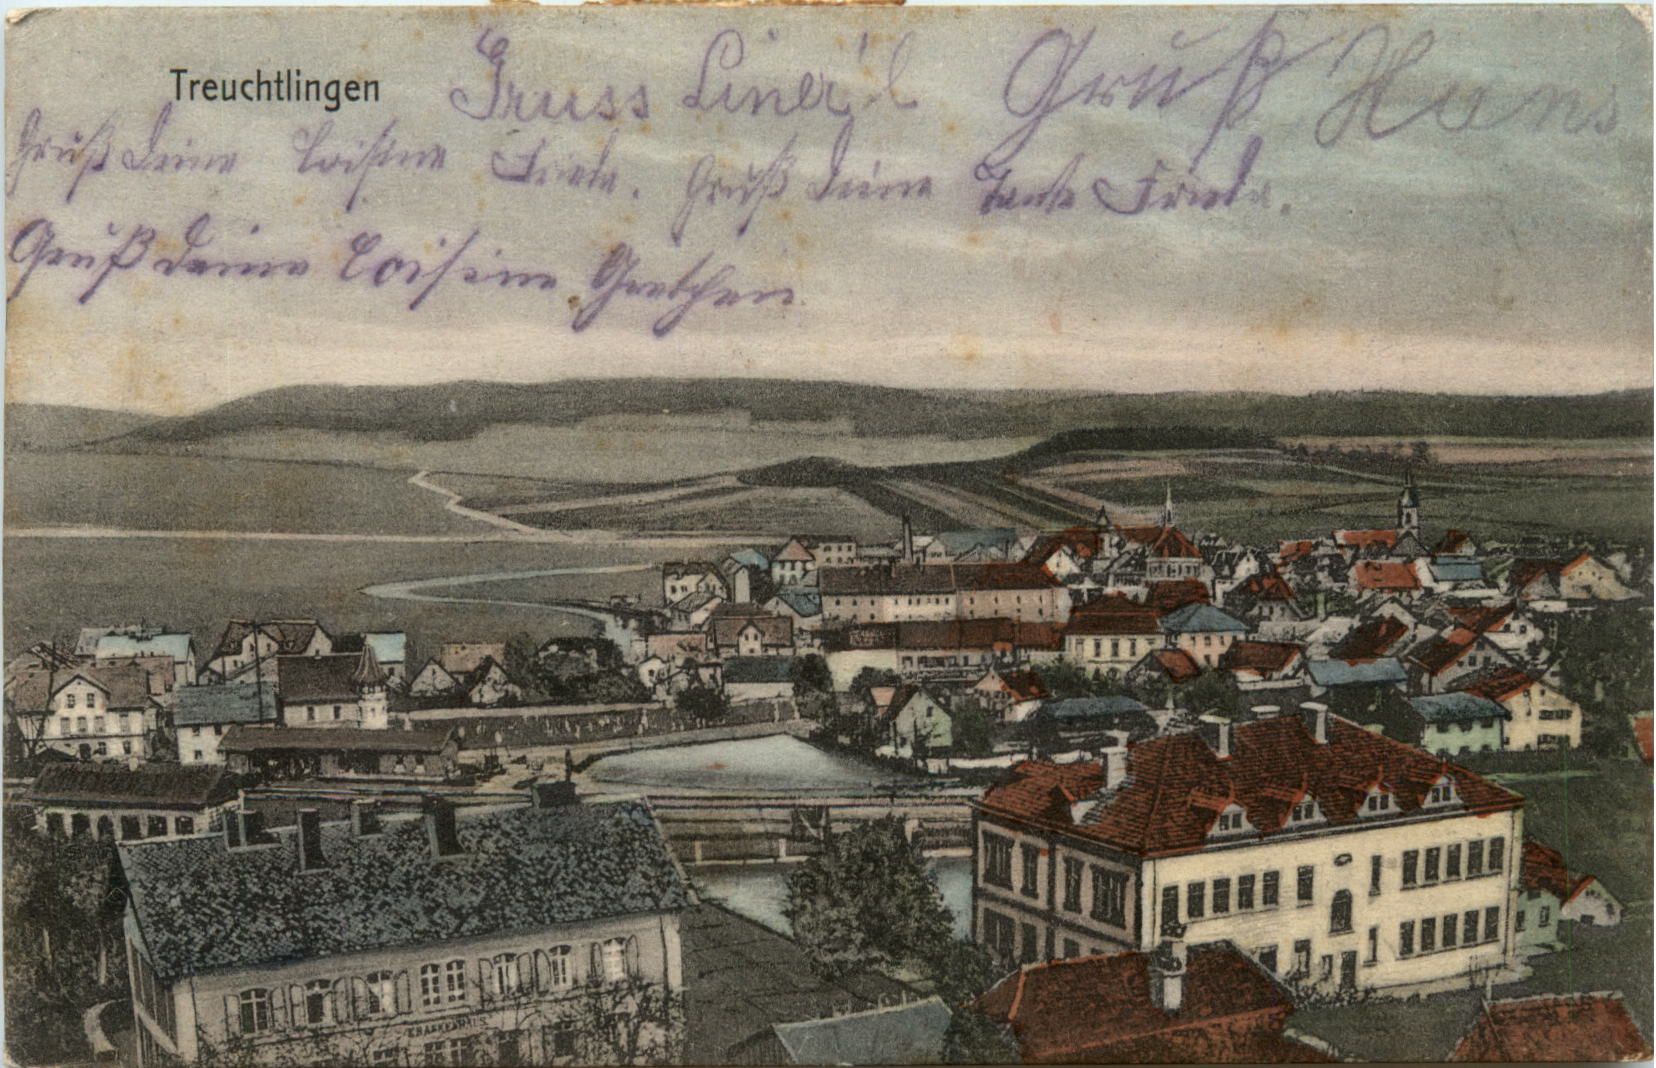 Treuchtlingen
Gruss Liner'l Gruß Hans
Gruß deine Coisine Frieda. Gruß deine Tante Frieda.
Gruß deine Coisine Gretchen
KRANKENHAUS